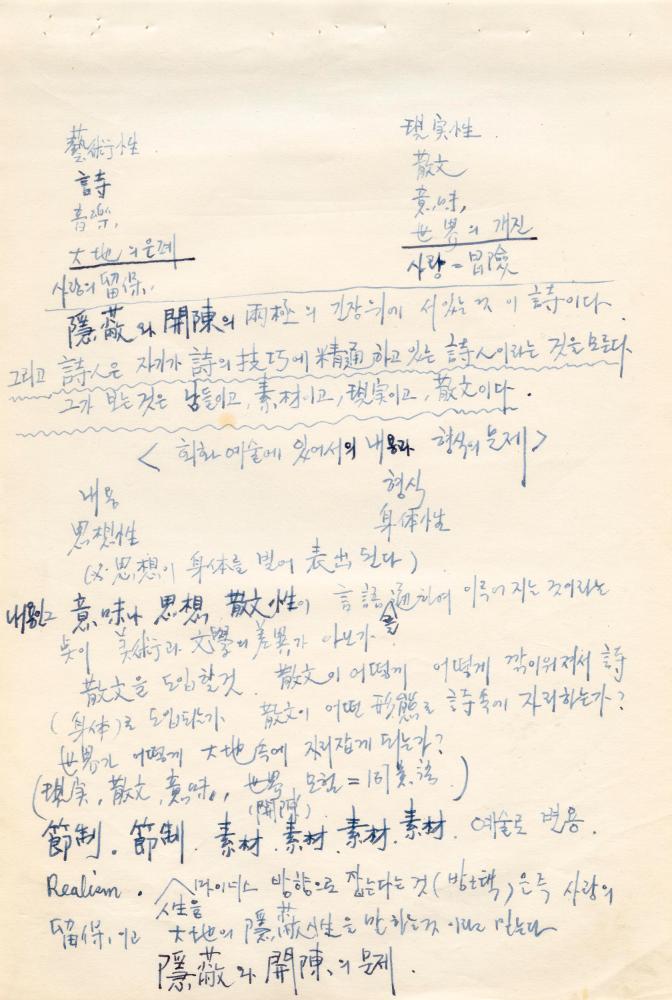 藝術性 現実性
詩 散文
音楽, 意味,
大地의 은폐 世界의 개진
사랑의 留保, 사랑 = 冒険
隠蔽와 開陳의 兩極의 긴장 위에 서 있는 것이 詩이다.
그리고 詩人은 자기가 詩의 技巧에 精通하고 있는 詩人이라는 것을 모른다.
그가 보는 것은 남들이고, 素材이고, 現実이고, 散文이다.
< 회화 예술에 있어서의 내용과 형식의 문제 >
내용 형식
思想性 身体性
思想이 身体를 빌어 表出된다)
意味나 思想, 散文性이 言語를 通하여 이루어지는 것이라는
美術과 文學의 差異가 아닌가.
散文을 도입할 것. 散文이 어떻게 어떻게 깎이워져서 詩
(身体)로 도입되는가. 散文이 어떤 形態로 詩 속에 자리하는가?
世界가 어떻게 大地 속에 자리잡게 되는가?
(現実, 散文, 意味, 世界, 모험 =
(開陳)
節制. 節制. 素材. 素材. 素材. 素材. 예술로 변용.
Realism. 마이너스 방향으로 잡는다는 것 은 즉 사랑의
人生을
留保, 이고 大地의 隠蔽性을 말하는 것이라고 믿는다
隠蔽와 開陳의 문제.